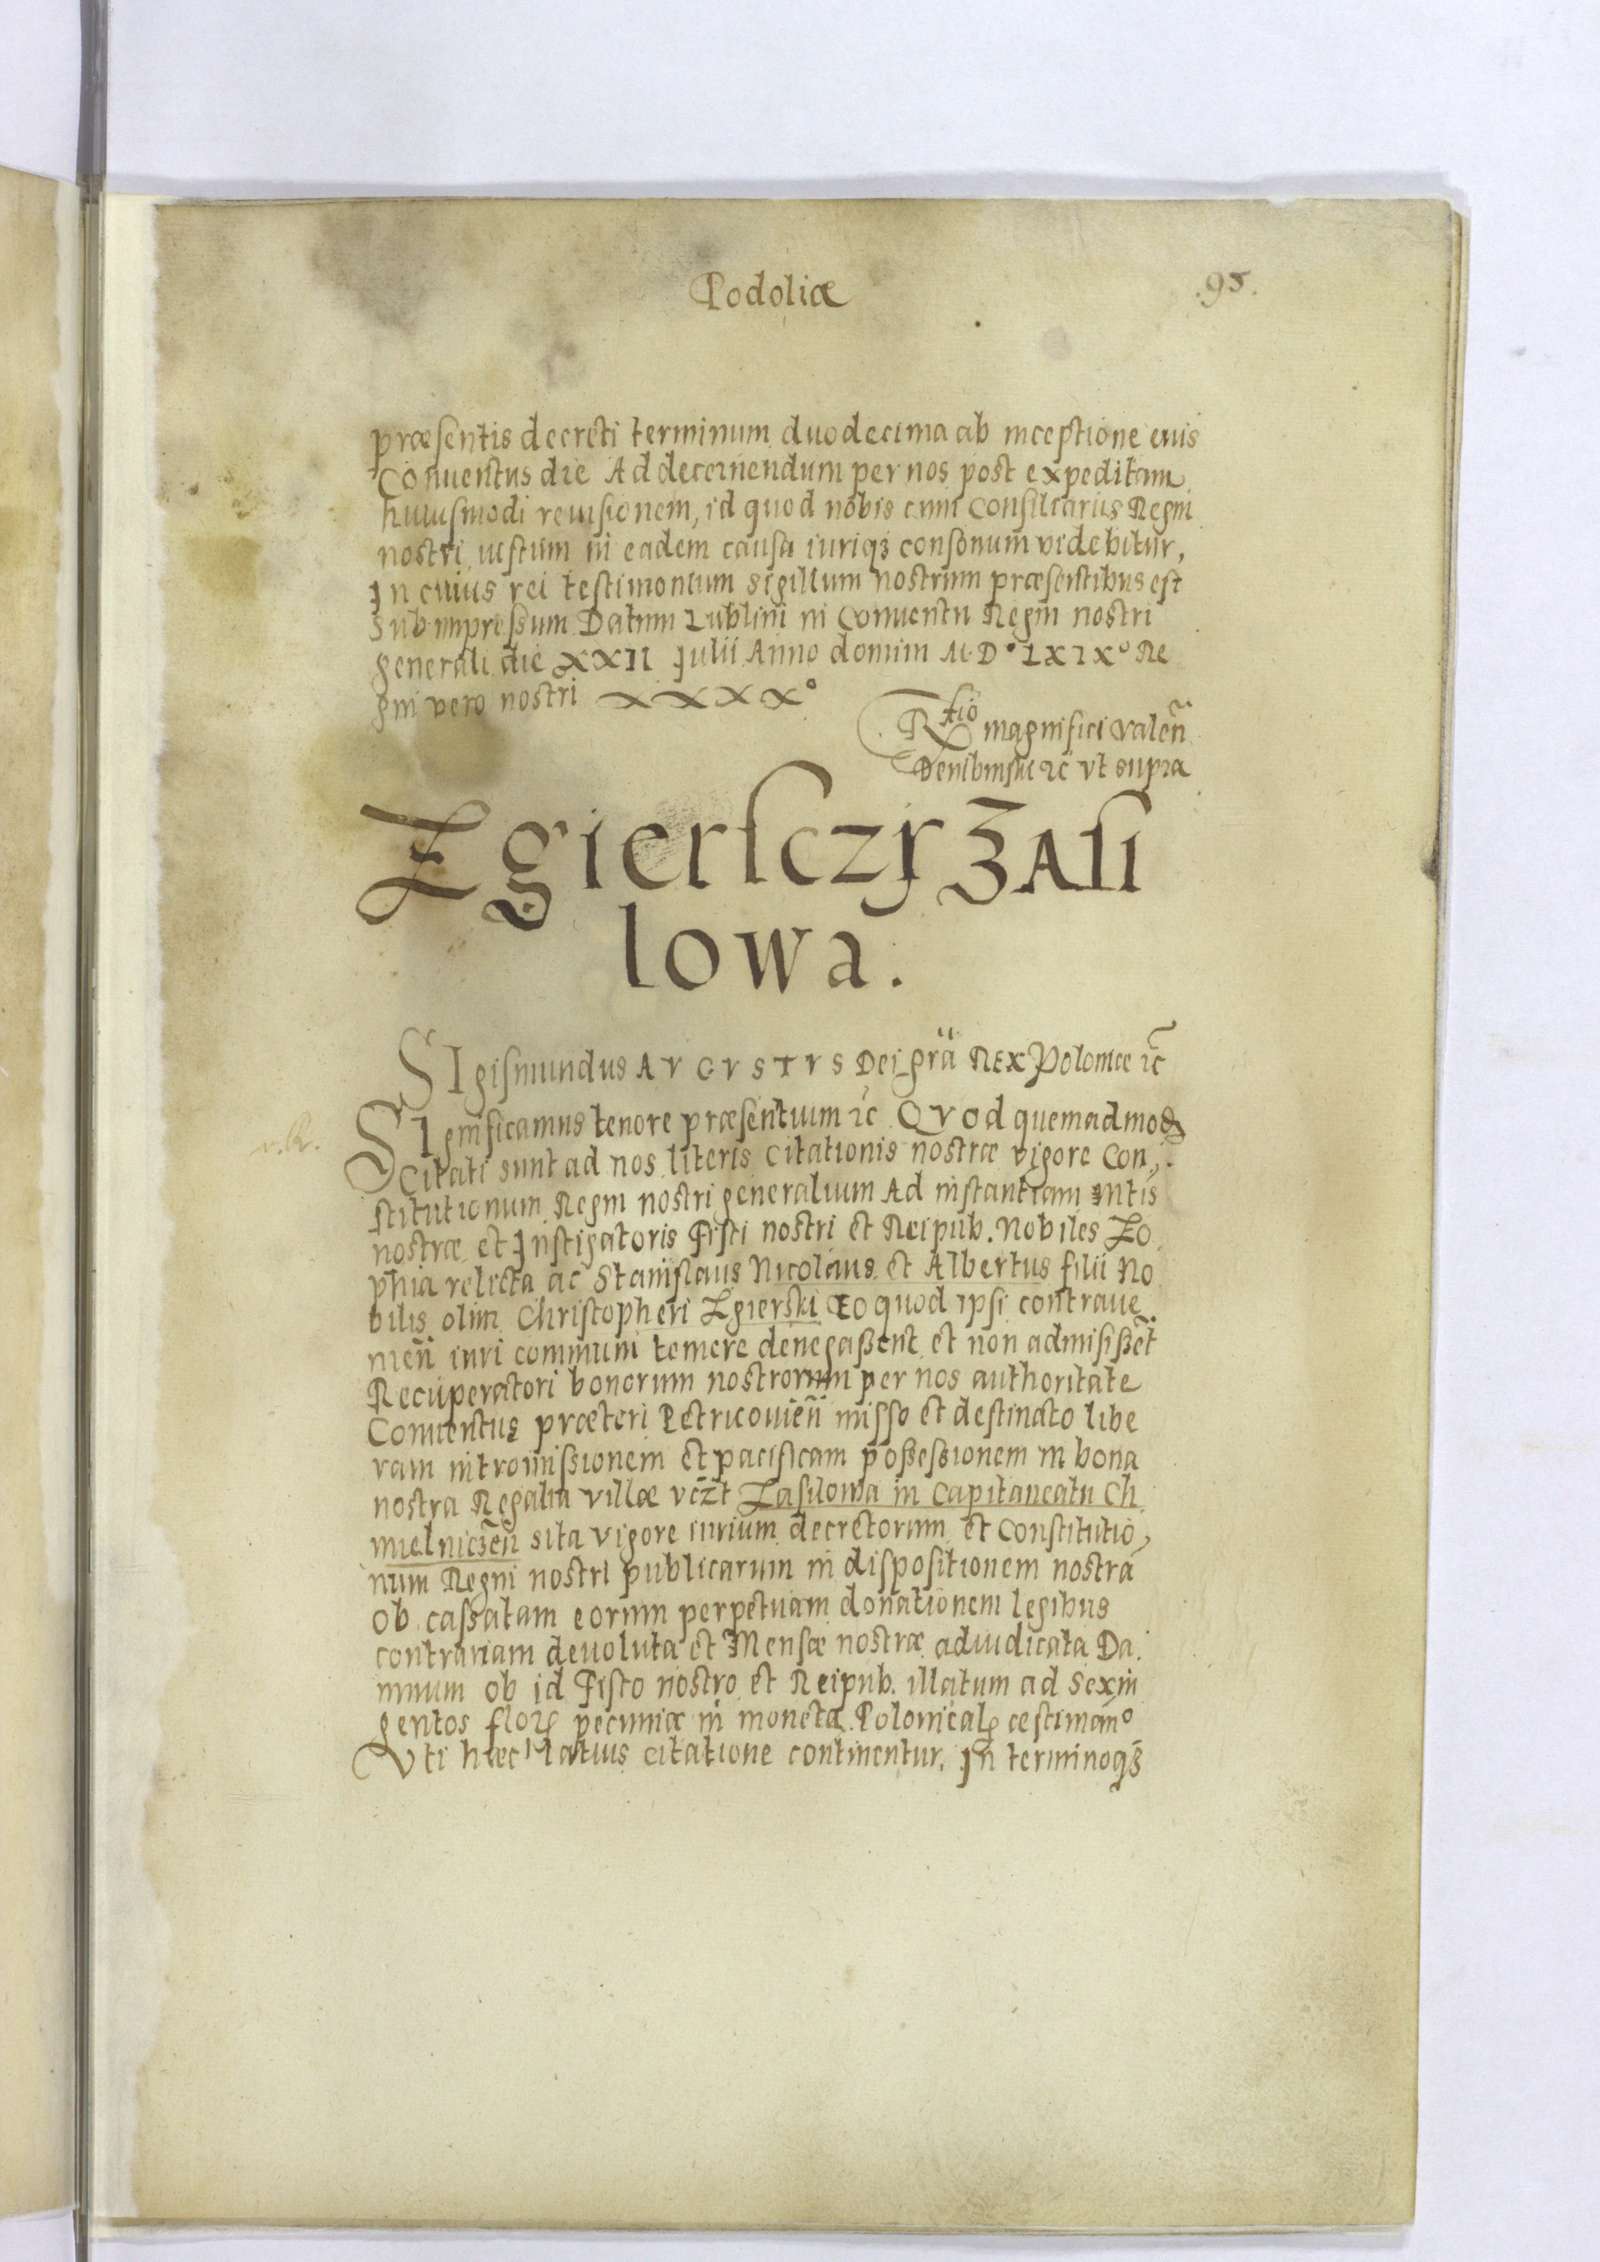 Podoliæ
.95.
præsentis decreti terminum duodecima ab inceptione eius
Conuentus die Ad decernendum per nos post expeditam
huiusmodi reuisionem, id quod nobis cum Consiliariis Regni
nostri iustum in eadem causa iuriqꝫ consonum videbitur,
In cuius rei testimonium sigillum nostrum præsentibus est
Subimpressum Datum Lublini in Conuentu Regni nostri
generali die XXII Iulii Anno domini M·D·LXIXº Re
gni vero nostri XXXXº
Rtio magnifici Valen̄
Dembinski ꝛc̄ vt supra
Zgiersczÿ Zasi
lowa.
SIgismundus AVGVSTVS Dei gr̄a REX Poloniæ ꝛc̄
v. R.
SIgnificamus tenore præsentium ꝛc̄ QVod quemadmodꝫ
Citati sunt ad nos literis Citationis nostræ vigore Con,
stitutionum Regni nostri generalium Ad instantiam Mtis
nostræ et Instigatoris Fisci nostri et Reipub. Nobiles Zo
phia relicta ac Stanislaus Nicolaus et Albertus filii No
bilis olim Christopheri Zgierski Eo quod ipsi contraue
nien̄ iuri communi temere denegassent et non admisissēt
Recuperatori bonorum nostrorum per nos authoritate
Conuentus præteri Petricouien̄ misso et destinato libe
ram intromissionem et pacificam possessionem in bona
nostra Regalia villæ vcꝫt Zasilowa in Capitaneatu Ch
mielnicꝫen̄ sita vigore iurium decretorum et Constitutio,
num Regni nostri publicarum in dispositionem nostrā
ob cassatam eorum perpetuam donationem legibus
contrariam deuoluta et Mensæ nostræ adiudicata Da
mnum ob id Fisco nostro et Reipub. illatum ad Sexin
gentos florꝫ pecuniæ in moneta Polonicalꝫ æstimanº
Vti hæc latius citatione continentur. In terminoqꝫ